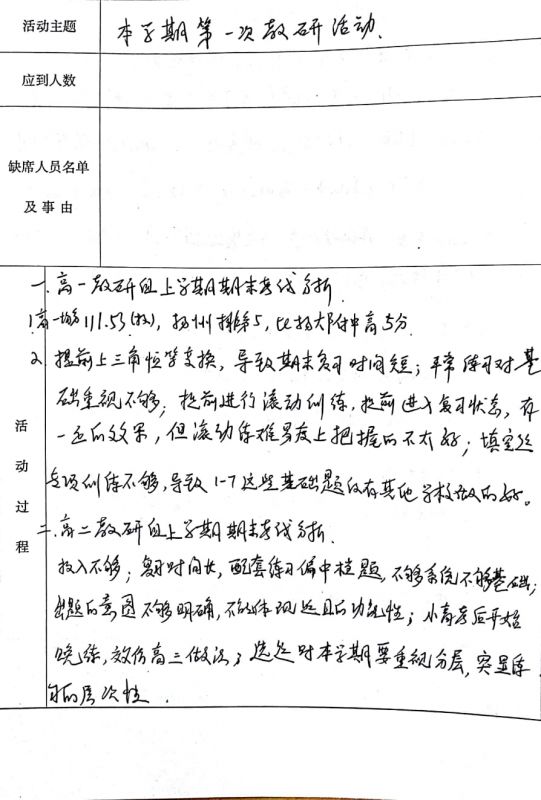 活动主题
本学期第一次教研活动.
应到人数
缺席人员名单
及事由
活动过程
一.高一教研组上学期期末考试分析.
1.高一均分111.53(校),扬州排第5,比扬大附中高5分
2.提前上三角恒等变换,导致期末复习时间短;平常练习对基
础重视不够;提前进行滚动训练,提前进入复习状态,有
一定的效果,但滚动练难易度上把握的不太好;填空题
专项训练不够,导致1-7这些基础题没有其他学校做的好。
二.高二教研组上学期期末考试分析.
投入不够;复习时间长,配套练习偏中档题,不够系统不够基础;
出题的意图不够明确,不能体现题目的功能性;小高考后开始
晚练,效仿高三做法;选题时本学期要重视分层,突显练
习的层次性.